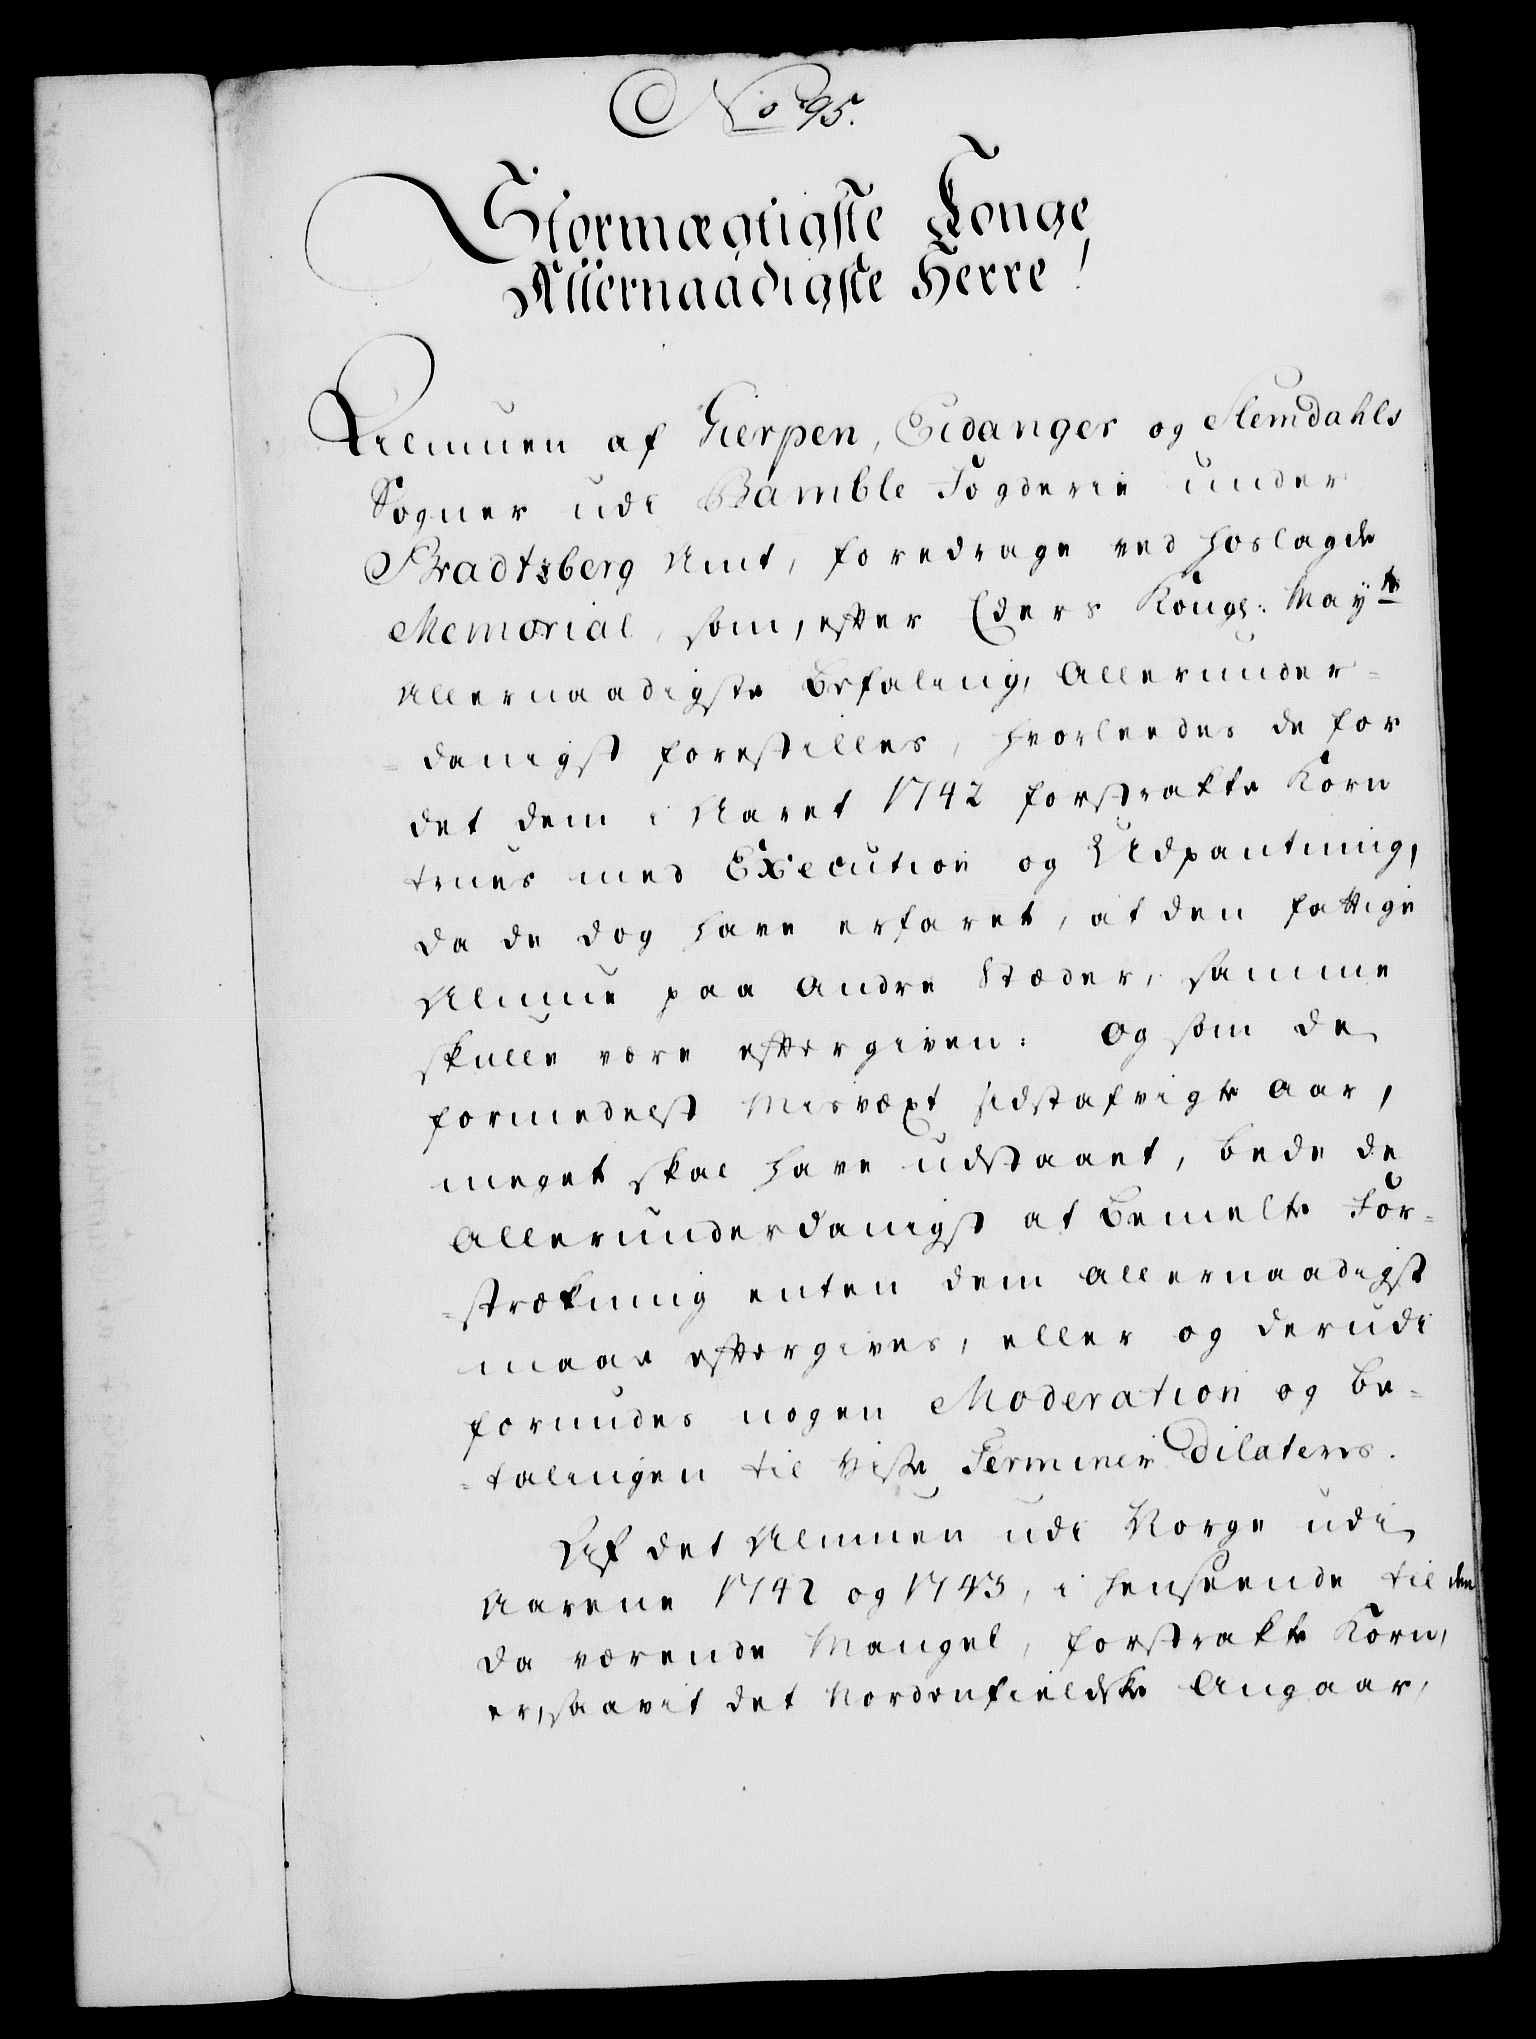 No 95.
Stormægtigste Konge
Allernaadigste Herre!
Almuen af Gierpen, Eidanger og Slemdahls
Sogner udi Bamble Fogderie under
Bradtsberg Amt, foredrage ved hoslagde
Memorial, som, efter Eders Kongl: Mayts
Allernaadigste Befaling, Allerunder-
-danigst forestilles, hvorleedes de for
det dem i Aaret 1742 forstrakte Korn
trues med Execution og Udpantning,
da de dog have erfaret, at den fattige
Almue paa andre Stæder, samme
skulle være eftergiven: Og som de
formedelst Misvæxt sidstafvigte Aar,
meget skal have udstaaet, bede de
Allerunderdanigst at bemelte For-
-strækning enten dem allernaadigst
maae eftergives, eller og derudi
forundes nogen Moderation og be-
-talingen til visse Terminer dilateres.
Af det Almuen udi Norge udi
Aarene 1742 og 1743, i henseende til den
da værende Mangel, forstrakte Korn,
er, saavit det Nordenfieldske Angaar,